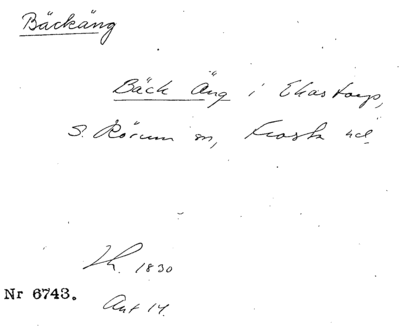 Bäckäng
Bäck Äng i Ekastorp,
S. Rörum sn, Frosta hd.
Lh. 1830
Nr 6743.
Akt 14.